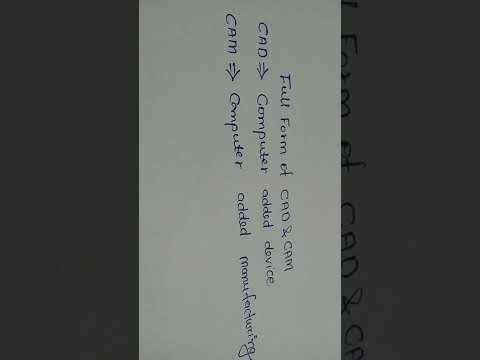 Full Form of CAD & CAM
CAD ⇒ Computer added device
CAM ⇒ Computer added manufacturing